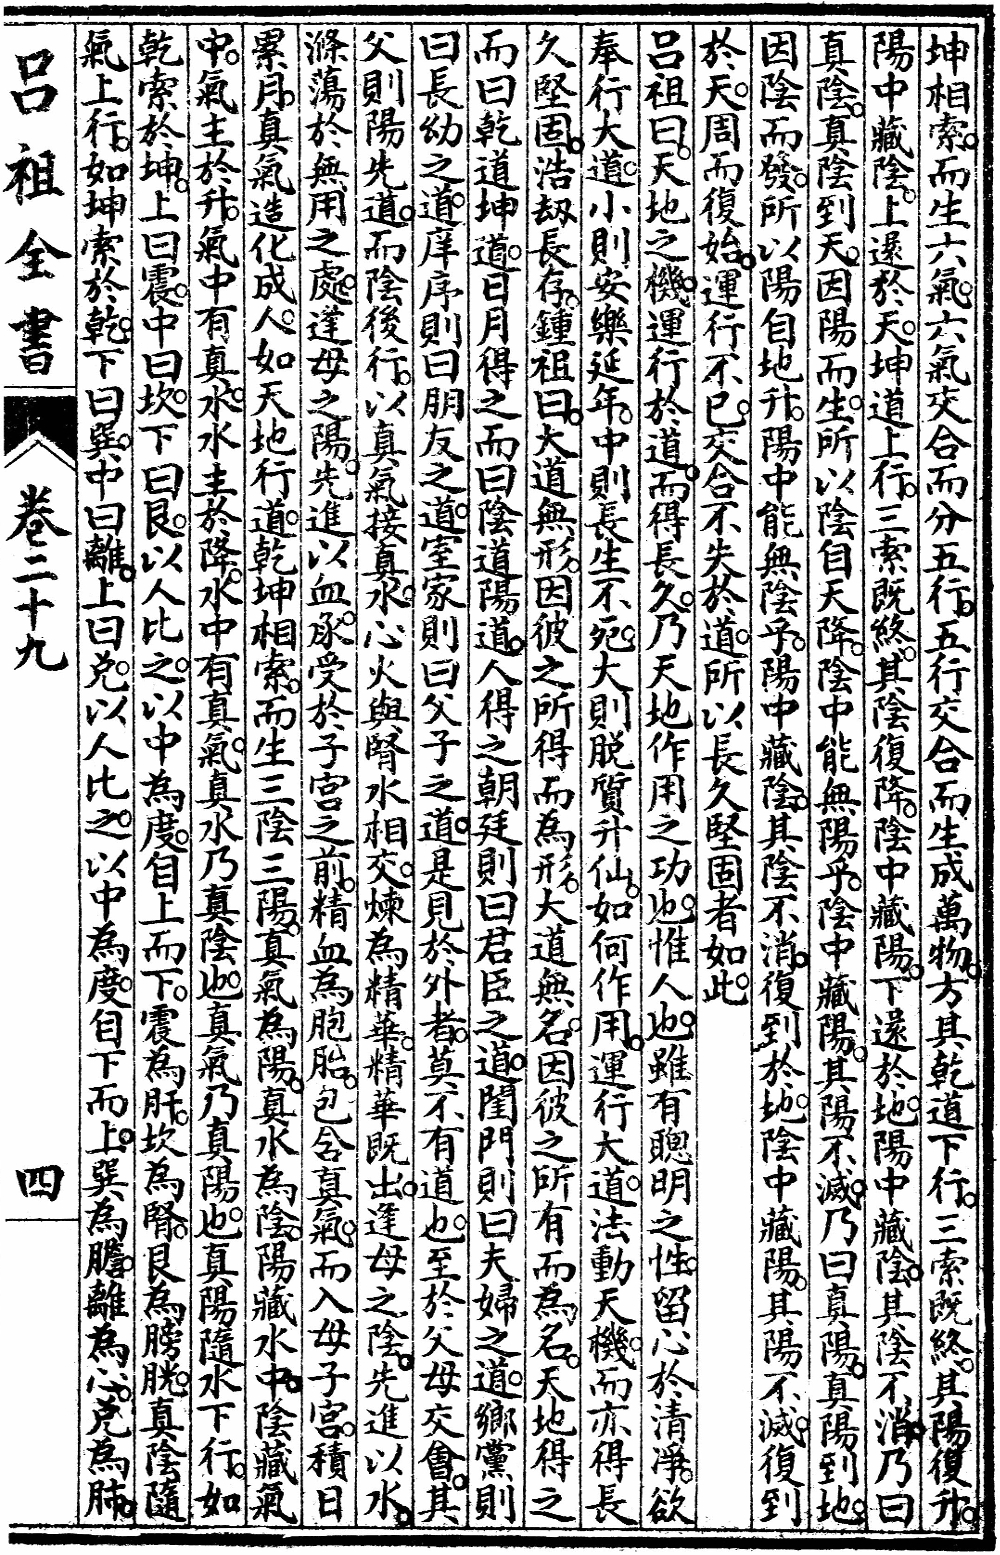 坤相索。而生六氣。六氣交合而分五行。五行交合而生成萬物。方其乾道下行。三索既終。其陽復升。
陽中藏陰。上還於天。坤道上行。三索既終。其陰復降。陰中藏陽。下還於地。陽中藏陰。其陰不消。乃曰
真陰。真陰到天。因陽而生。所以陰自天降。陰中能無陽乎。陰中藏陽。其陽不滅。乃曰真陽。真陽到地。
因陰而發。所以陽自地升。陽中能無陰乎。陽中藏陰。其陰不消。復到於地。陰中藏陽。其陽不滅。復到
於天。周而復始。運行不已。交合不失於道。所以長久堅固者如此。
呂祖曰。天地之機。運行於道。而得長久。乃天地作用之功也。惟人也。雖有聰明之性。留心於清淨。欲
奉行大道。小則安樂延年。中則長生不死。大則脱質升仙。如何作用。運行大道。法動天機。而亦得長
久堅固。浩劫長存。鍾祖曰。大道無形。因彼之所得而為形。大道無名。因彼之所有而為名。天地得之
而曰乾道坤道。日月得之而曰陰道陽道。人得之朝廷則曰君臣之道。閨門則曰夫婦之道。鄉黨則
曰長幼之道。庠序則曰朋友之道。室家則曰父子之道。是見於外者。莫不有道也。至於父母交會。其
父則陽先道。而陰後行。以真氣接真水。心火與腎水相交。煉為精華。精華既出。逢母之陰。先進以水。
滌蕩於無用之處。逢母之陽。先進以血。承受於子宮之前。精血為胞胎。包含真氣。而入母子宮。積日
累月。真氣造化成人。如天地行道。乾坤相索。而生三陰三陽。真氣為陽。真水為陰。陽藏水中。陰藏氣
中。氣主於升。氣中有真水。水主於降。水中有真氣。真水乃真陰也。真氣乃真陽也。真陽隨水下行。如
乾索於坤。上曰震。中曰坎。下曰艮。以人比之。以中為度。自上而下。震為肝。坎為腎。艮為膀胱。真陰隨
氣上行。如坤索於乾。下曰巽。中曰離。上曰兌。以人比之。以中為度。自下而上。巽為膽。離為心。兌為肺。
呂祖全書 卷二十九 四